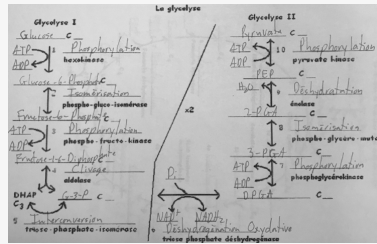 La glycolyse
Glycolyse I
Glucose C_
ATP
1 Phosphorylation
ADP
hexokinase
Glucose-6-Phosphate C_
2 Isomérisation
phospho-gluco-isomérase
Fructose-6-Phosphate C_
ATP
3 Phosphorylation
ADP
phospho-fructo-kinase
Fructose-1-6-Diphosphate C_
4 Clivage
aldolase
DHAP
C3
G-3-P C_
5 Interconversion
triose-phosphate-isomérase
x2
Glycolyse II
Pyruvate C_
ATP
10 Phosphorylation
ADP
pyruvate kinase
PEP C_
H2O
9 Déshydratation
énolase
2-PGA C_
8 Isomérisation
phospho-glycéro-mutase
3-PGA C_
ATP
7 Phosphorylation
ADP
phosphoglycérokinase
DPGA C_
Pi
NAD+
NADH2
6 Déshydrogénation Oxydative
triose phosphate déshydrogénase